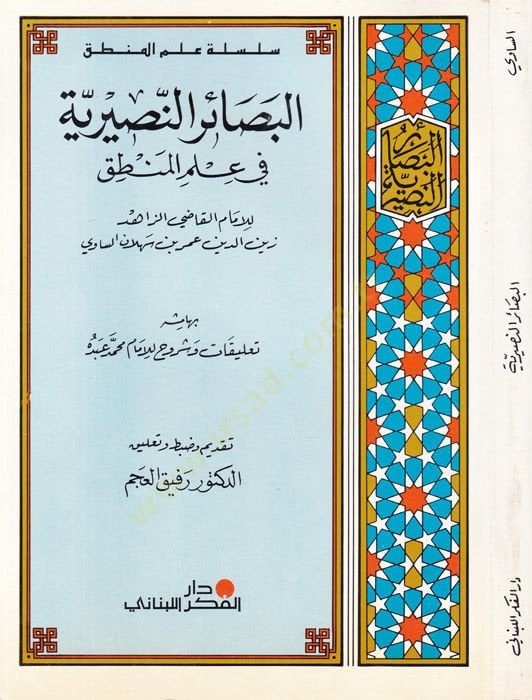 سلسلة علم المنطق
البَصَائر النَّصيريّة
في عِلمِ المَنطق
للامَام القاضي الزاهد
زين الدين عمر بن سهلان الساوي
بهامشه
تعليقات وشروح للامام محمّد عَبدُه
تقديم وضبط وتعليق
الدكتور رفيق العجم
دار
الفكر اللبناني
البَصَائر
النصيرية
الساوي
البصَائر النصيريّة
دار الفكر اللبناني